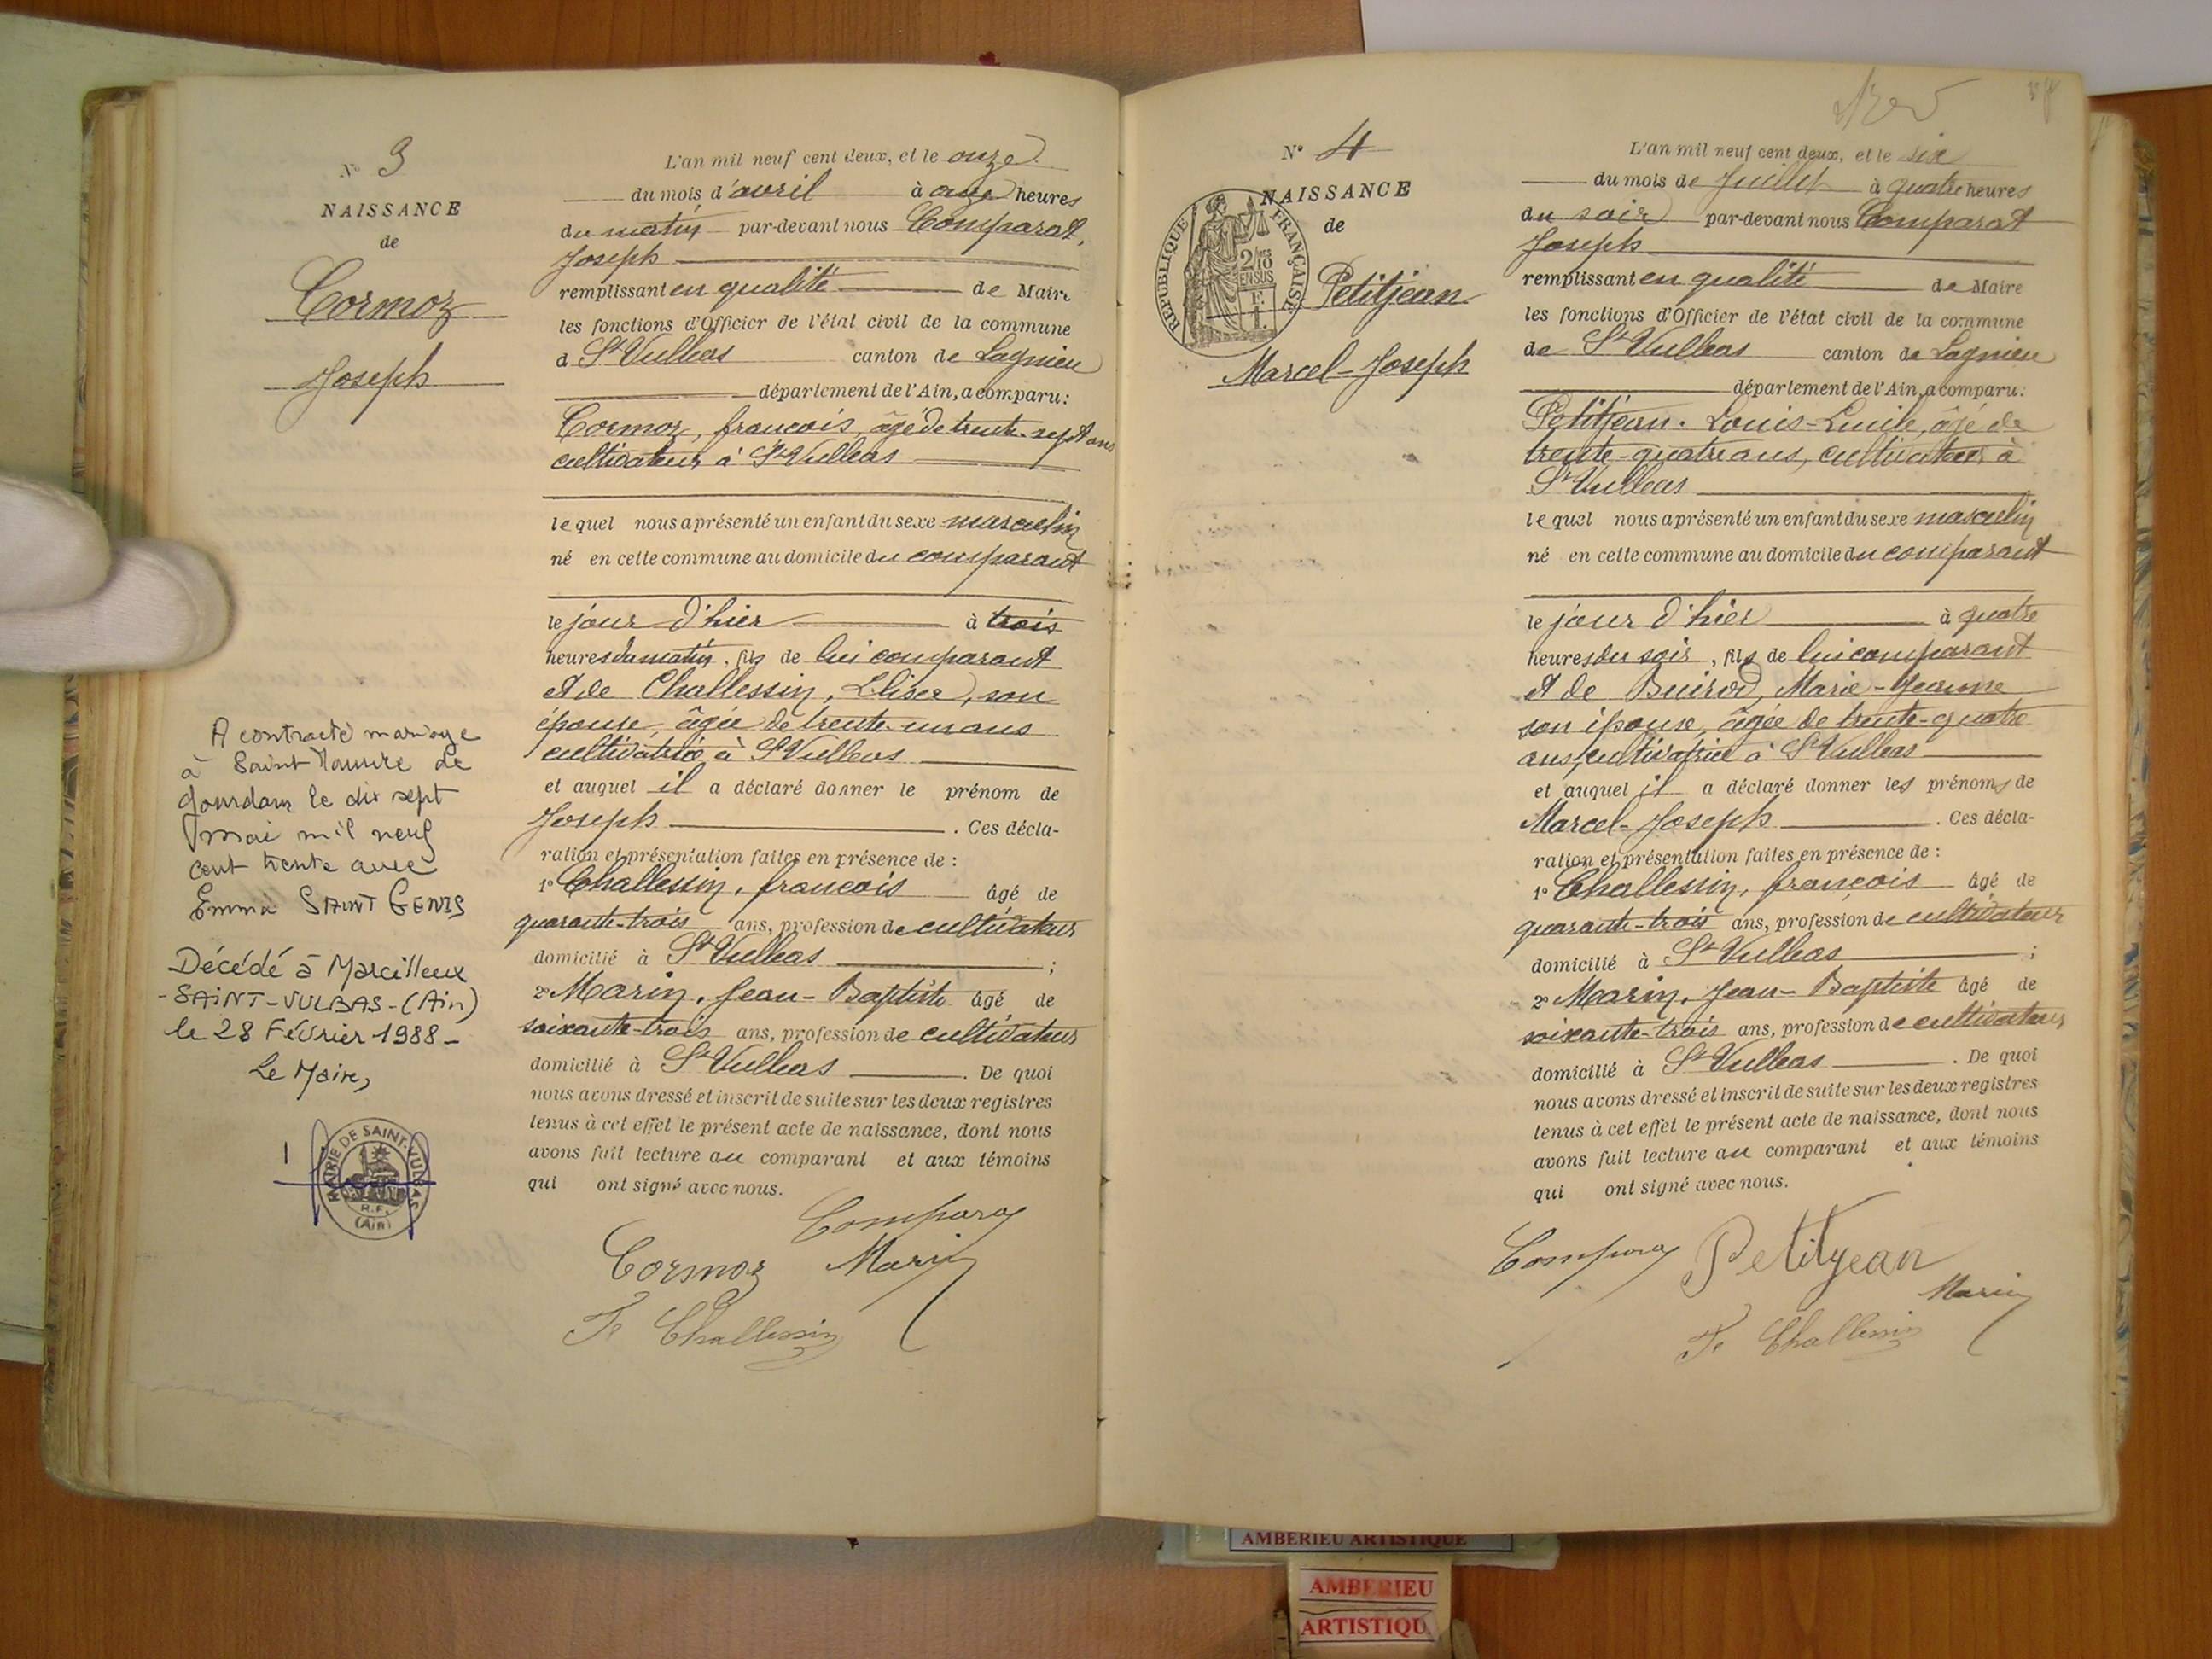 N° 3
NAISSANCE
de
Cormoz
Joseph
A contracté mariage
à Saint Maurice de
Gourdans le dix sept
mai mil neuf
cent trente avec
Emma SAINT GENIS
Décédé à Marcilleux
-SAINT-VULBAS-(Ain)
le 28 Février 1988-
Le Maire,
MAIRIE DE SAINT-VULBAS
R.F.
(Ain)
L'an mil neuf cent deux, et le onze
du mois d'avril à onze heures
du matin par-devant nous Comparat,
Joseph
remplissant en qualité de Maire
les fonctions d'Officier de l'état civil de la commune
d St Vulbas canton de Lagnieu
département de l'Ain, a comparu:
Cormoz, francois, âgé de trente-sept ans
cultivateur à St Vulbas
lequel nous a présenté un enfant du sexe masculin
né en cette commune au domicile du comparant
le jour d'hier à trois
heures du matin, fils de lui comparant
et de Challessin, Elisa, son
épouse, âgée de trente-un ans
cultivatrice à St Vulbas
et auquel il a déclaré donner le prénom de
Joseph . Ces décla-
ration et présentation faites en présence de :
1° Challessin, francois âgé de
quarante-trois ans, profession de cultivateur
domicilié à St Vulbas ;
2° Marin, Jean-Baptiste âgé de
soixante-trois ans, profession de cultivateur
domicilié à St Vulbas . De quoi
nous avons dressé et inscrit de suite sur les deux registres
tenus à cet effet le présent acte de naissance, dont nous
avons fait lecture au comparant et aux témoins
qui ont signé avec nous.
Comparat
Cormoz Marin
Fs Challessin
N° 4
NAISSANCE
de
RÉPUBLIQUE FRANÇAISE
2/10 EN SUS
Petitjean
Marcel-Joseph
L'an mil neuf cent deux, et le six
du mois de Juillet à quatre heures
du soir par-devant nous Comparat
Joseph
remplissant en qualité de Maire
les fonctions d'Officier de l'état civil de la commune
de St Vulbas canton de Lagnieu
département de l'Ain, a comparu:
Petitjean. Louis-Lucile, âgé de
trente-quatre ans, cultivateur à
St Vulbas
lequel nous a présenté un enfant du sexe masculin
né en cette commune au domicile du comparant
le jour d'hier à quatre
heures du soir, fils de lui comparant
et de Buirod, Marie-Jeanne
son épouse, âgée de trente-quatre
ans, cultivatrice à St Vulbas
et auquel il a déclaré donner les prénoms de
Marcel-Joseph . Ces décla-
ration et présentation faites en présence de :
1° Challessin, françois âgé de
quarante-trois ans, profession de cultivateur
domicilié à St Vulbas ;
2° Marin, Jean-Baptiste âgé de
soixante-trois ans, profession de cultivateur
domicilié à St Vulbas . De quoi
nous avons dressé et inscrit de suite sur les deux registres
tenus à cet effet le présent acte de naissance, dont nous
avons fait lecture au comparant et aux témoins
qui ont signé avec nous.
Comparat Petitjean
Marin
Fs Challessin
AMBERIEU ARTISTIQUE
AMBERIEU
ARTISTIQU